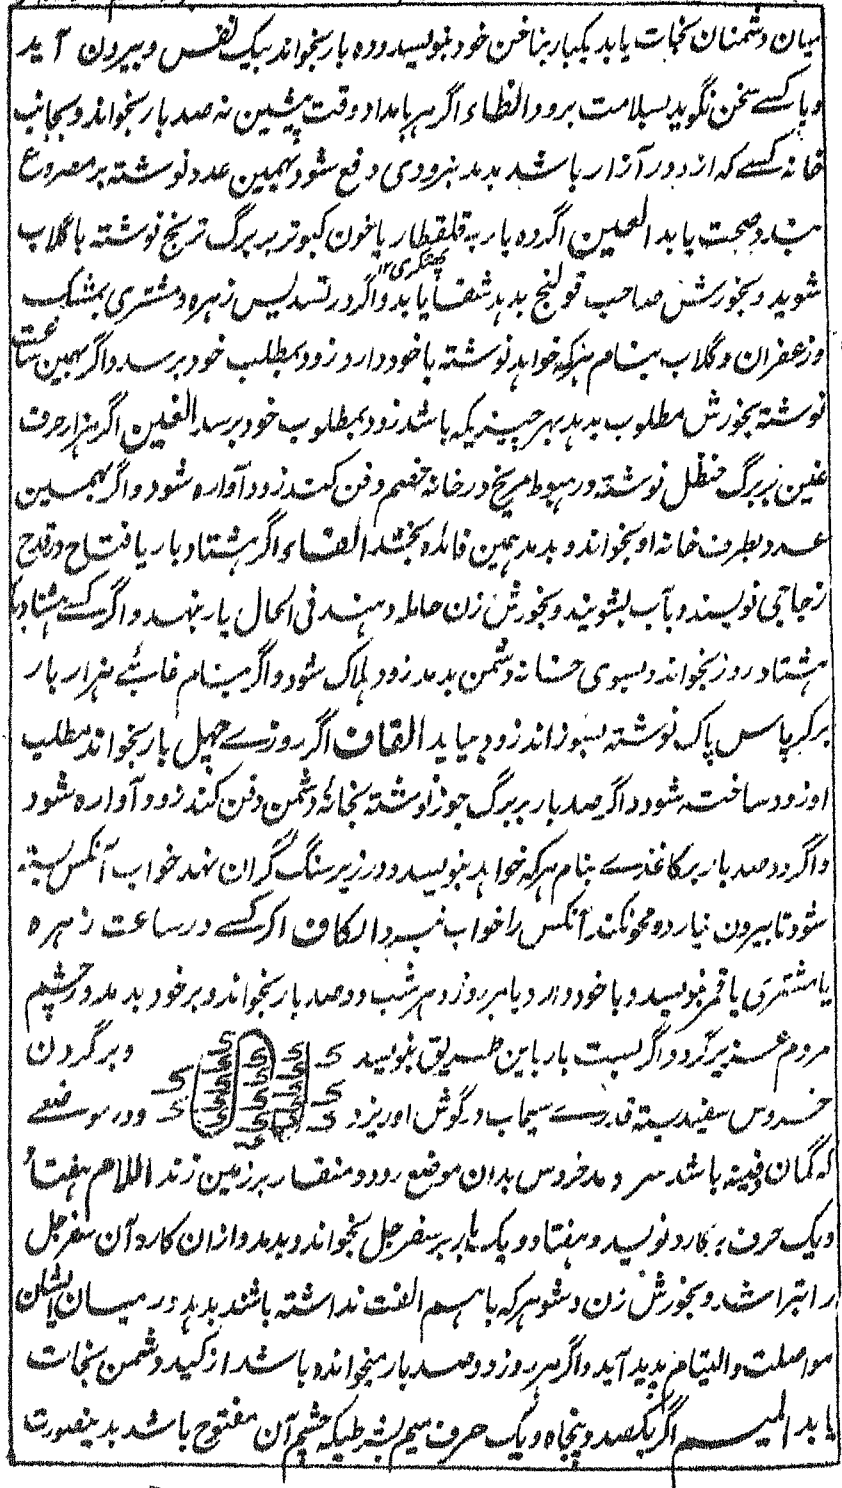 میان دشمنان نجات یابد یکبار بناخن خود بنویسد و ده بار بخواند بیک نفس و بیرون آید
و با کسے سخن نگوید بسلامت برود الظاء اگر هر بامداد وقت پیشین نه صد بار بخواند و بجانب
خانه کسے که از دور آزار باشد بدمد بزودی دفع شود و بهمین عدد نوشته بر مصروع
بندد صحت یابد العین اگر ده بار به قلقطار یا خون کبوتر بر برگ ترنج نوشته با گلاب
پهٹکری ۱۲
شوید و بخورش صاحب قولنج بدهد شفا یابد و اگر در تسدیس زهره و مشتری بمشک
و زعفران و گلاب بنام هر که خواهد نوشته با خود دارد زود بمطلب خود برسد و اگر بهمین ساعت
نوشته بخورش مطلوب بدهد بهر چیزیکه باشد زود بمطلوب خود برسد الغین اگر هزار حرف
غین بر برگ حنظل نوشته در هبوط مریخ در خانه خصم دفن کند زود آواره شود و اگر بهمین
عدد بطرف خانه او بخواند و بدمد همین فائده بخشد الفاء اگر هشتاد بار یا فتاح در قدح
زجاجی نویسند و بآب بشویند و بخورش زن حامله دهند فی الحال بار بنهد و اگر کسے هشتاد بار
هشتاد روز بخواند و بسوی خانه دشمن بدمد زود هلاک شود و اگر بنام غائبے هزار بار
بر کرپاس پاک نوشته بسوزاند زود بیاید القاف اگر روزے چهل بار بخواند مطلب
او زود ساخته شود و اگر صد بار بر برگ جوز نوشته بخانه دشمن دفن کند زود آواره شود
و اگر دو صد بار بر کاغذے بنام هر که خواهد بنویسد و در زیر سنگ گران نهد خواب آنکس بسته
شود تا بیرون نیارد و محو نکند آنکس را خواب نبرد الکاف اگر کسے در ساعت زهره
یا مشتری یا قمر بنویسد و با خود دارد یا هر روز و هر شب دو صد بار بخواند و بر خود بدمد در چشم
مردم عزیز گردد و اگر بست بار باین طریق بنویسد و بر گردن
خروس سفید بسته قدرے سیماب در گوش او ریزد و در موضعے
که گمان دفینه باشد سر دهد خروس بدان موضع رود و منقار بر زمین زند اللام هفتاد
و یک حرف بر کارد نویسد و هفتاد و یک بار بر سفرجل بخواند و بدمد و از ان کارد آن سفرجل
را بتراشد و بخورش زن و شوهر که باهم الفت نداشته باشند بدهد در میان ایشان
مواصلت و التیام پدید آید و اگر هر روز دو صد بار میخوانده باشد از کید دشمن نجات
یابد المیم اگر یکصد و پنجاه و یک حرف میم بشرطیکه چشم آن مفتوح باشد بدینصورت